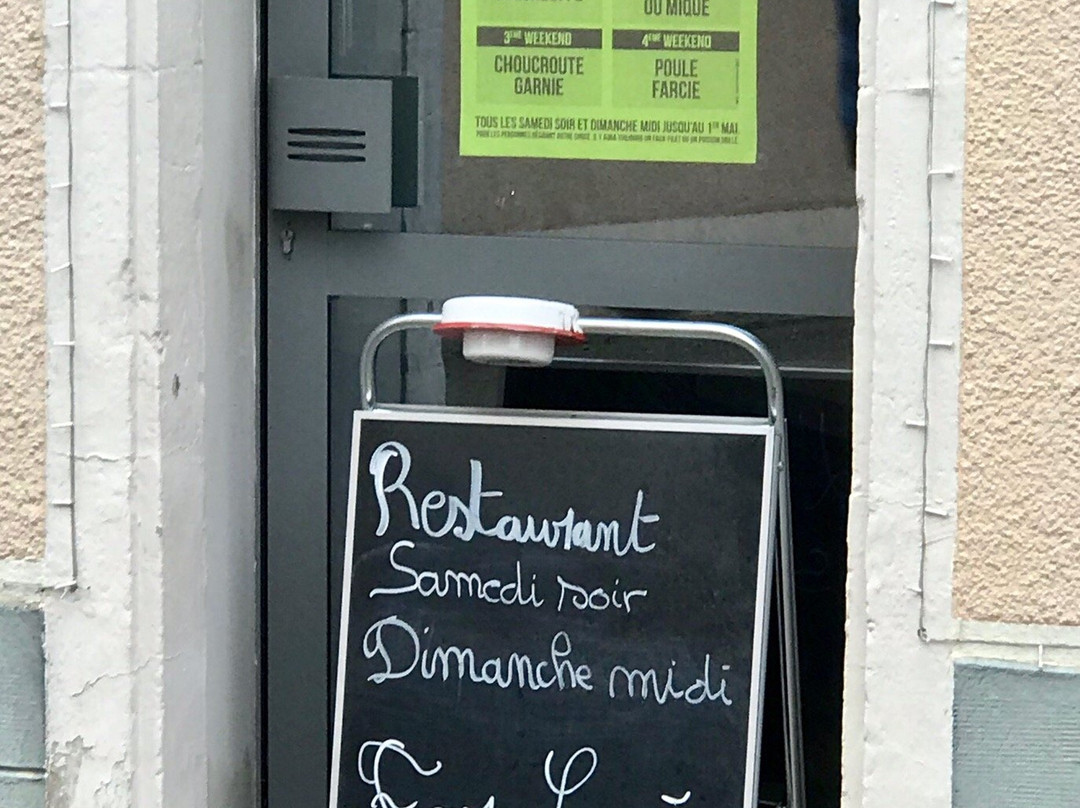 OU MIQUE
3ÈME WEEKEND
CHOUCROUTE
GARNIE
4ÈME WEEKEND
POULE
FARCIE
TOUS LES SAMEDI SOIR ET DIMANCHE MIDI JUSQU'AU 1ER MAI
Restaurant
Samedi soir
Dimanche midi